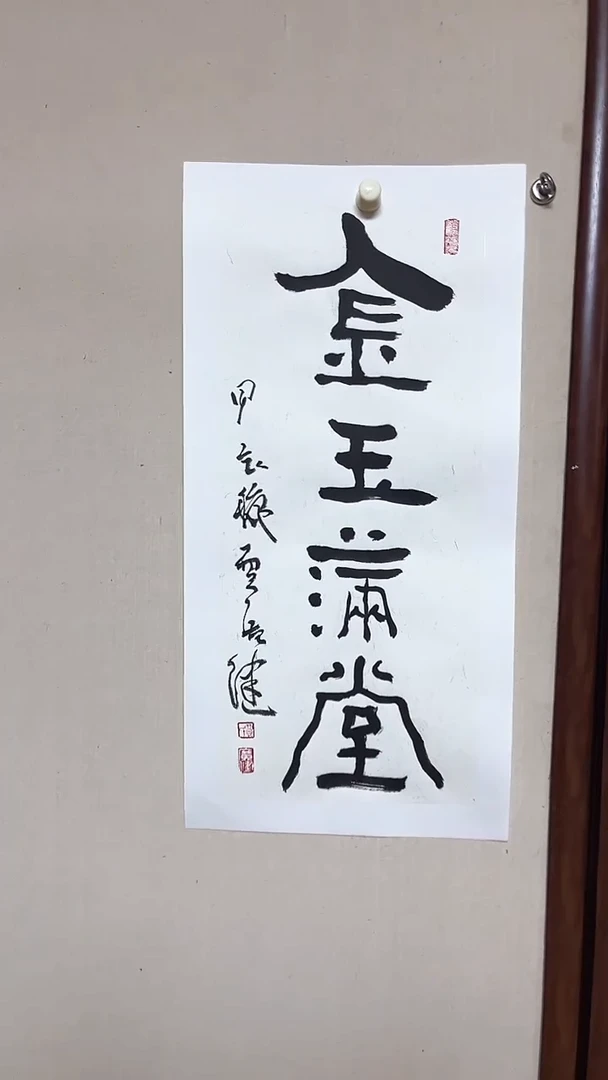 金玉滿堂
甲辰秋贾居健